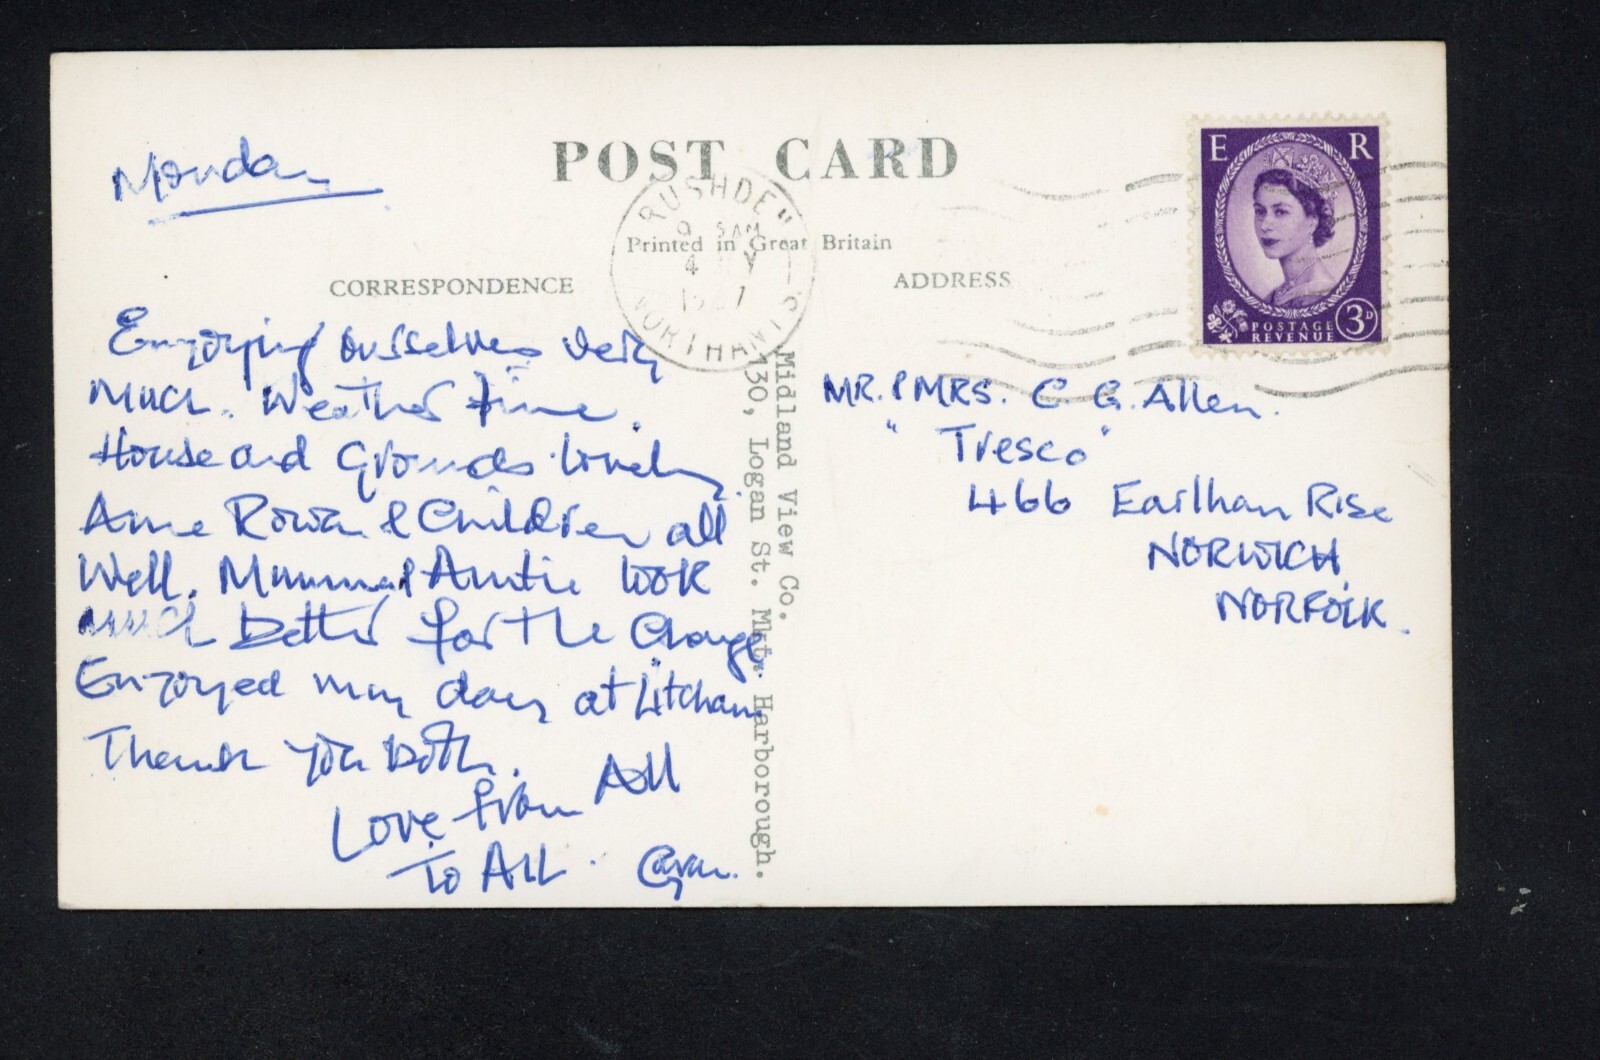 Monday
POST CARD
RUSHDEN
NORTHANTS
Printed in Great Britain
CORRESPONDENCE
ADDRESS
E R
POSTAGE
REVENUE
3D
Enjoying ourselves very
much. Weather fine.
House and Grounds lovely
Anne Rowan & Children all
Well. Mummy & Auntie look
much better for the change
Enjoyed my day at Litcham
Thank you both.
Love from All
To All.
Midland View Co.
130, Logan St. Mkt. Harborough.
MR. & MRS. C. G. Allen.
"Tresco"
466 Earlham Rise
NORWICH.
NORFOLK.